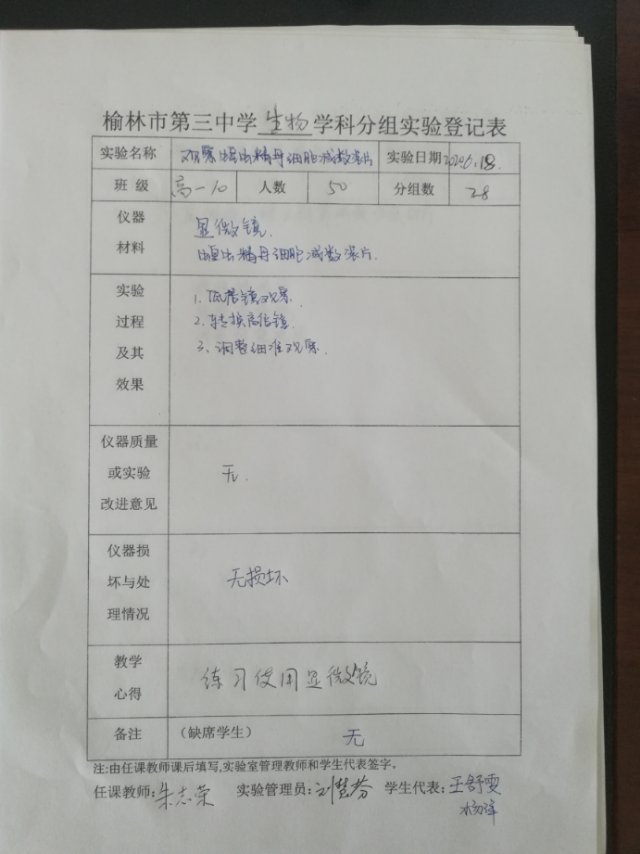 榆林市第三中学生物学科分组实验登记表
实验名称 观察蝗虫精母细胞减数装片 实验日期 2020.6.18.
班 级 高一10 人数 50 分组数 28
仪器 材料
显微镜.
蝗虫精母细胞减数装片.
实验 过程 及其 效果
1. 低倍镜观察.
2. 转换高倍镜.
3. 调整细准观察.
仪器质量 或实验 改进意见
无.
仪器损 坏与处 理情况
无损坏
教学 心得
练习使用显微镜
备注 (缺席学生) 无
注:由任课教师课后填写,实验室管理教师和学生代表签字。
任课教师:朱志荣 实验管理员:刘慧芬 学生代表:王舒雯
杨